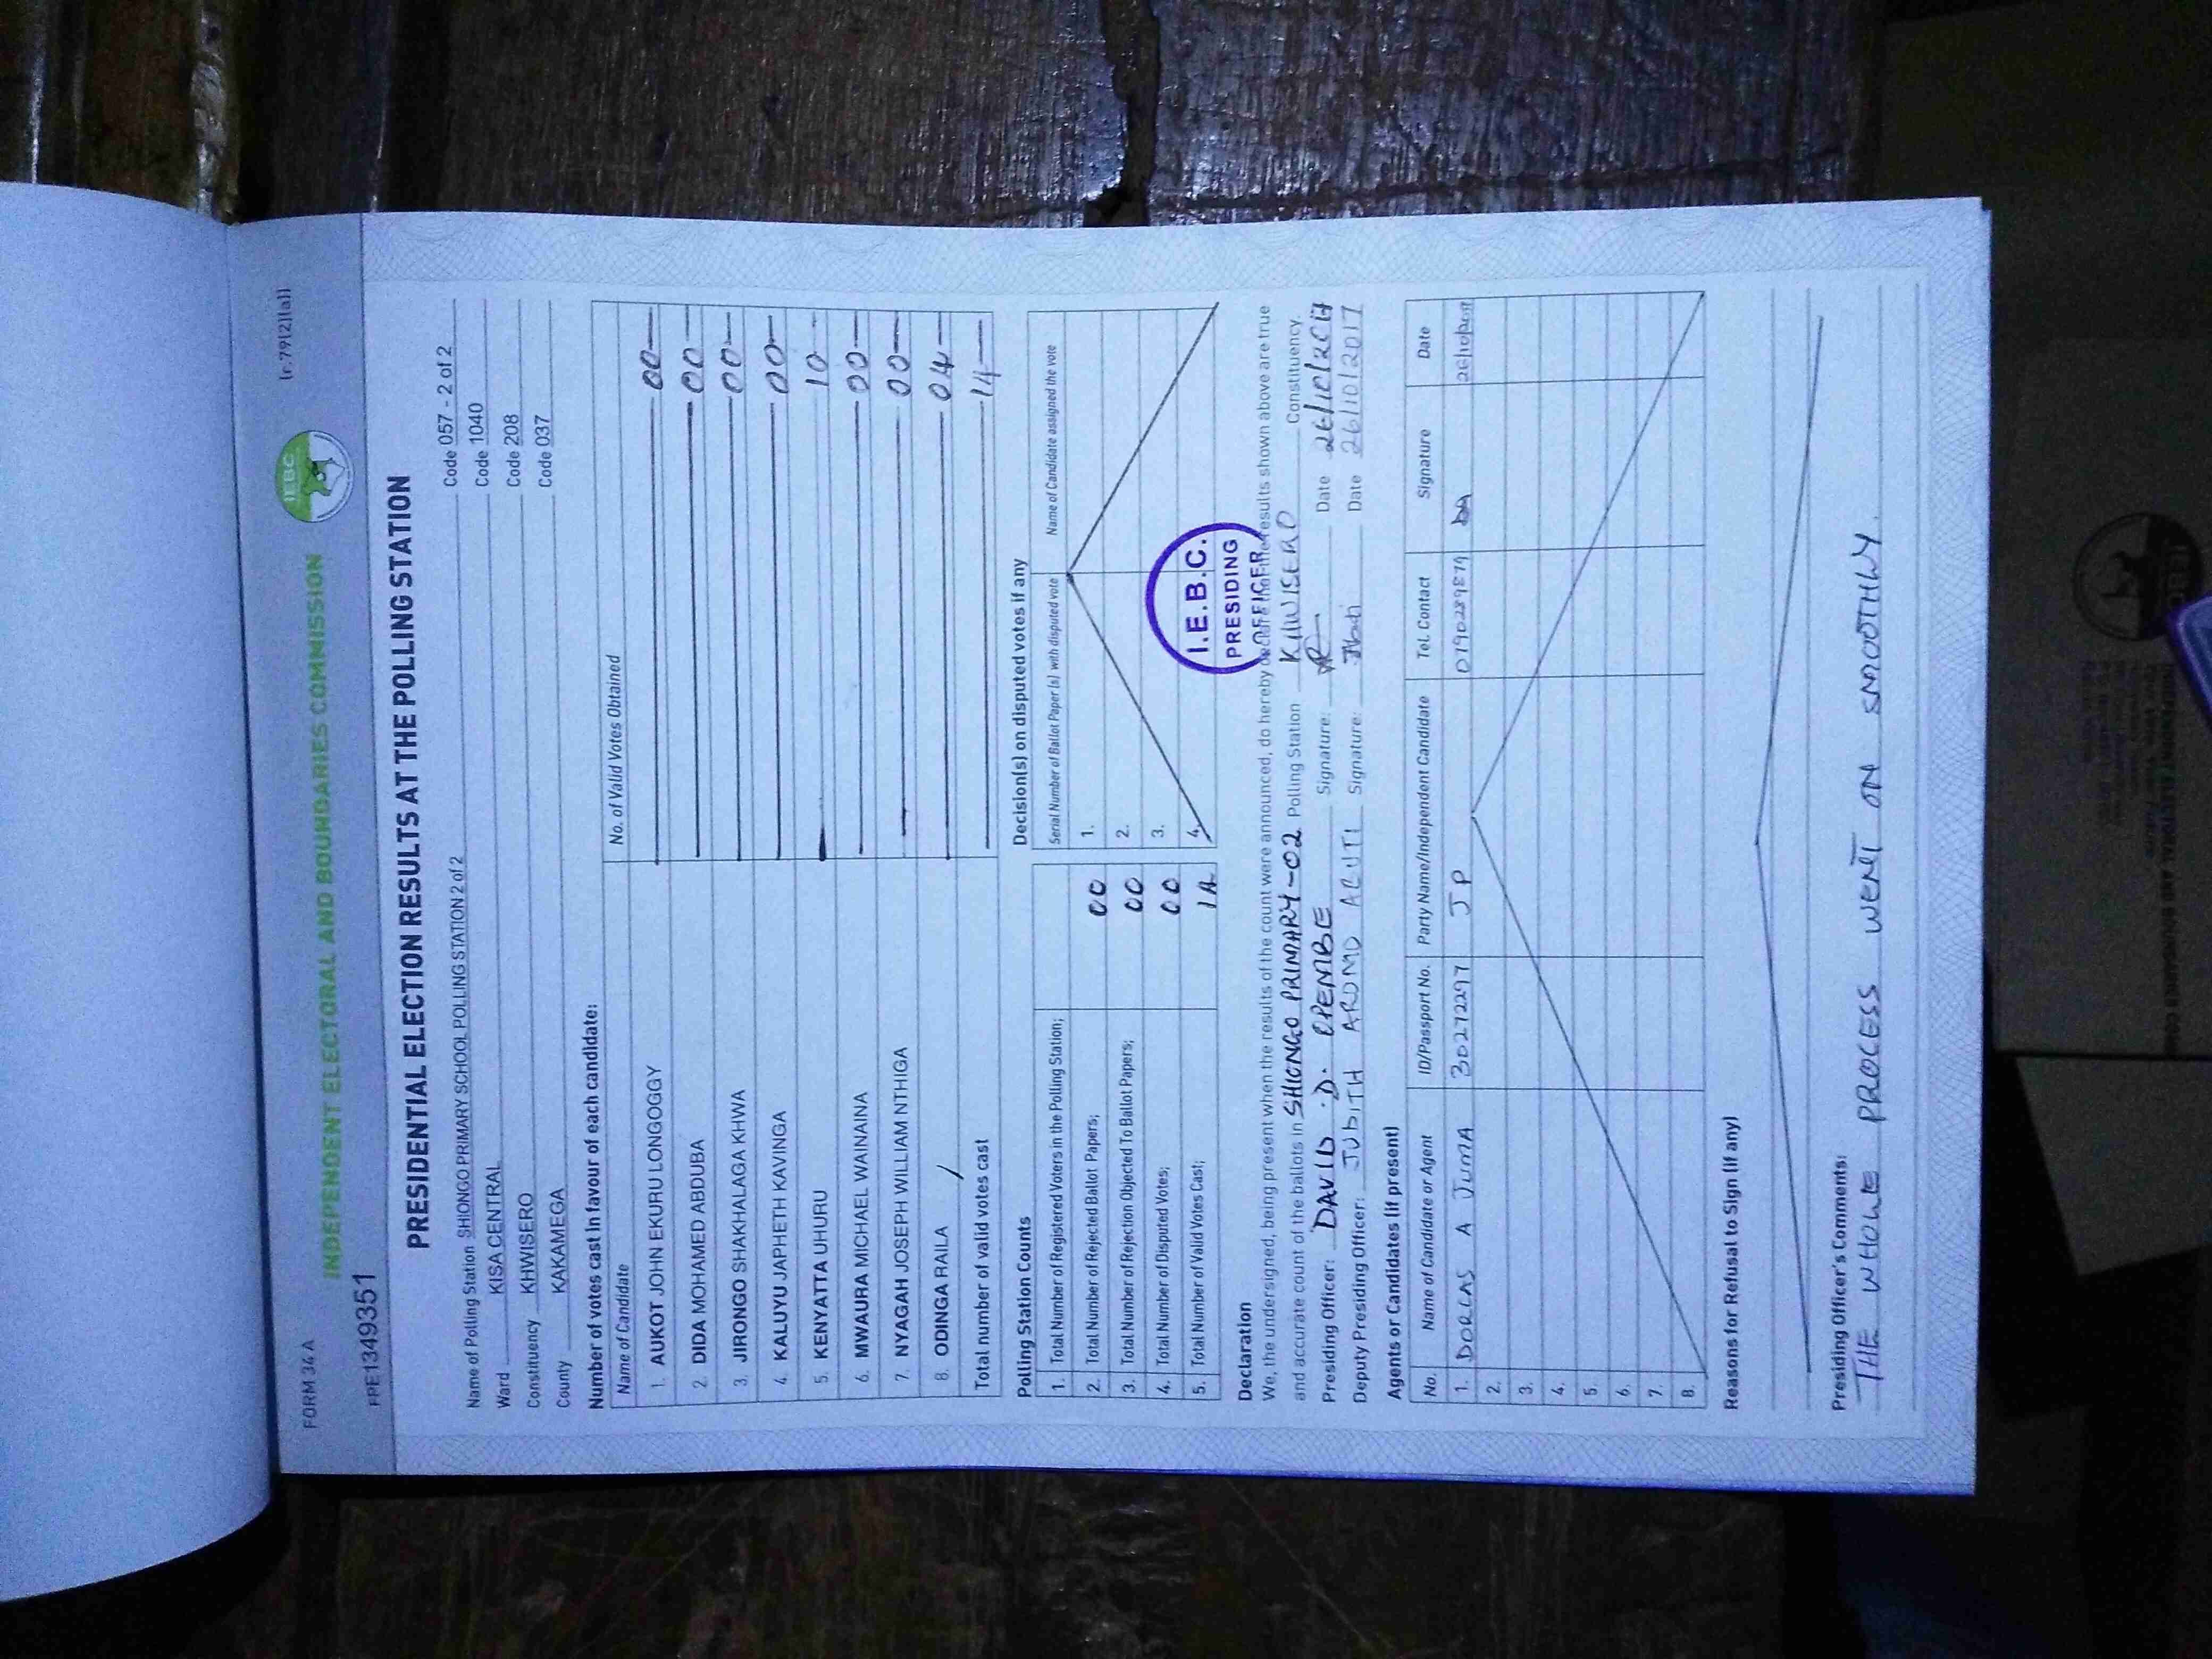 FORM 34 A
[r.79(2)(a)]
INDEPENDENT ELECTORAL AND BOUNDARIES COMMISSION
IEBC
PRE1349351
PRESIDENTIAL ELECTION RESULTS AT THE POLLING STATION
Name of Polling Station SHIONGO PRIMARY SCHOOL POLLING STATION 2 of 2 Code 057 - 2 of 2
Ward KISA CENTRAL Code 1040
Constituency KHWISERO Code 208
County KAKAMEGA Code 037
Number of votes cast in favour of each candidate:
Name of Candidate No. of Valid Votes Obtained
1. AUKOT JOHN EKURU LONGOGGY 00
2. DIDA MOHAMED ABDUBA 00
3. JIRONGO SHAKHALAGA KHWA 00
4. KALUYU JAPHETH KAVINGA 00
5. KENYATTA UHURU 10
6. MWAURA MICHAEL WAINAINA 00
7. NYAGAH JOSEPH WILLIAM NTHIGA 00
8. ODINGA RAILA 04
Total number of valid votes cast 14
Polling Station Counts
1. Total Number of Registered Voters in the Polling Station;
2. Total Number of Rejected Ballot Papers; 00
3. Total Number of Rejection Objected To Ballot Papers; 00
4. Total Number of Disputed Votes; 00
5. Total Number of Valid Votes Cast; 14
Decision(s) on disputed votes if any
Serial Number of Ballot Paper(s) with disputed vote Name of Candidate assigned the vote
1.
2.
3.
4.
I.E.B.C.
PRESIDING
OFFICER
Declaration
We, the undersigned, being present when the results of the count were announced, do hereby declare that the results shown above are true
and accurate count of the ballots in SHIONGO PRIMARY-02 Polling Station KHWISERO Constituency.
Presiding Officer: DAVID D. OPEMBE Signature: Date 26/10/2017
Deputy Presiding Officer: JUDITH Signature: Date 26/10/2017
Agents or Candidates (if present)
No. Name of Candidate or Agent ID/Passport No. Party Name/Independent Candidate Tel. Contact Signature Date
1. DORCAS A JUMA 30272297 JP 0790289879 DA 26/10/2017
2.
3.
4.
5.
6.
7.
8.
Reasons for Refusal to Sign (if any)
Presiding Officer's Comments:
THE WHOLE PROCESS WENT ON SMOOTHLY.